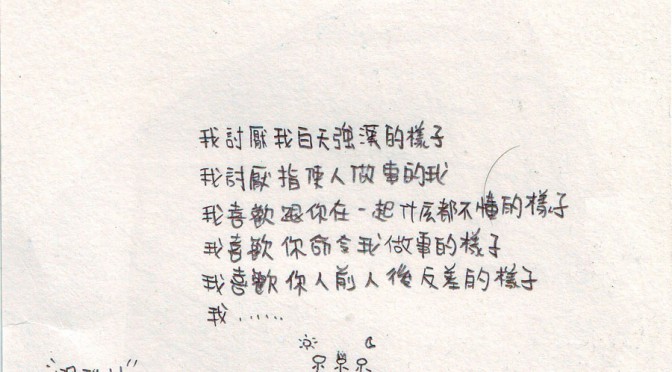 我討厭我白天強漢的樣子
我討厭指使人做事的我
我喜歡跟你在一起什么都不懂的樣子
我喜歡你命令我做事的樣子
我喜歡你人前人後反差的樣子
我……